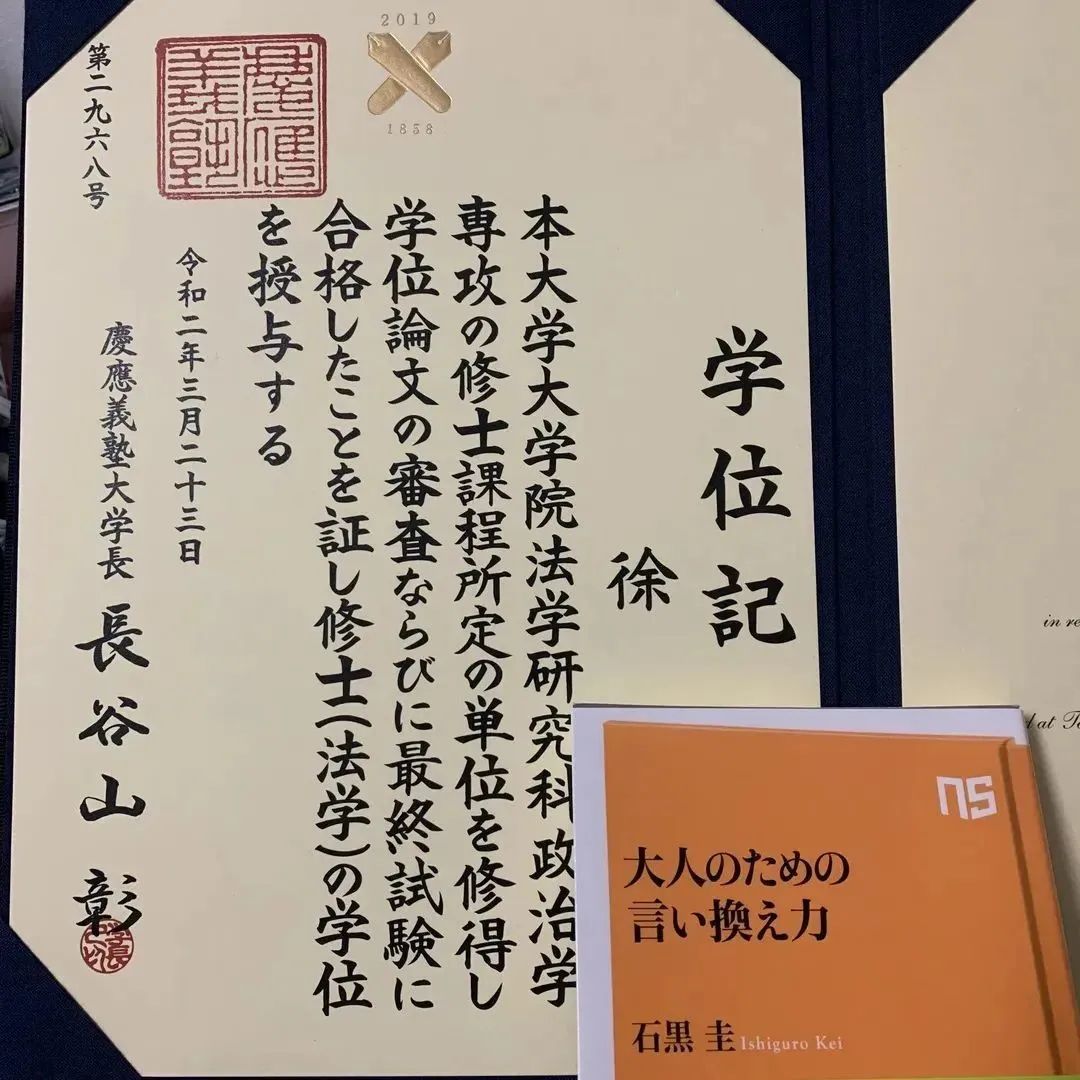 学位記
徐
本大学大学院法学研究科政治学
専攻の修士課程所定の単位を修得し
学位論文の審査ならびに最終試験に
合格したことを証し修士(法学)の学位
を授与する
令和二年三月二十三日
慶應義塾大学長 長谷山 彰
第二九六八号
慶應義塾
2019
1858
in re
d at To
NS
大人のための
言い換え力
石黒 圭 Ishiguro Kei